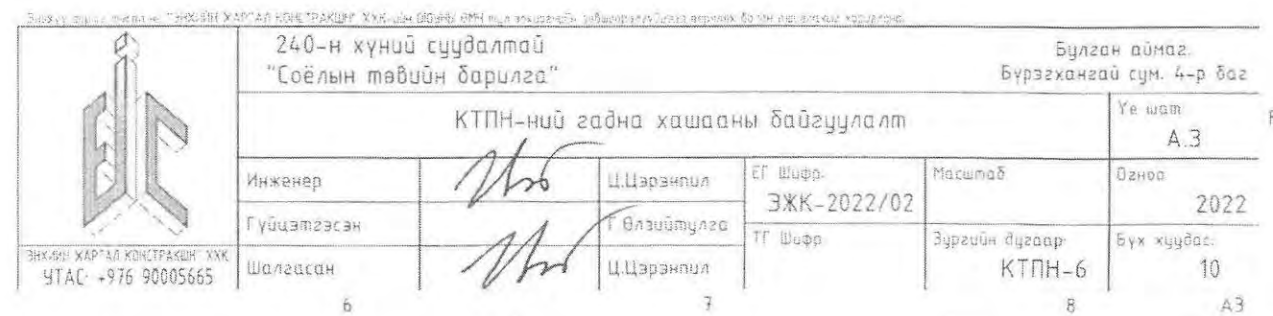 240-н хүний суудалтай
"Соёлын төвийн барилга"
Булган аймаг.
Бүрэгхангай сум. 4-р баг
КТПН-ний гадна хашааны байгуулалт
Үе шат
А.З
Инженер
Ц.Цэрэнпил
ЕГ Шифр:
ЭЖК-2022/02
Масштаб
Огноо
2022
Гүйцэтгэсэн
Г.Өлзийтулга
ТГ Шифр
Зургийн дугаар:
КТПН-6
Бүх хуудас:
10
Шалгасан
Ц.Цэрэнпил
ЭНХ-ИЙН ЖАРГАЛ КОНСТРАКШН" ХХК
УТАС: +976 90005665
6
7
8
А3